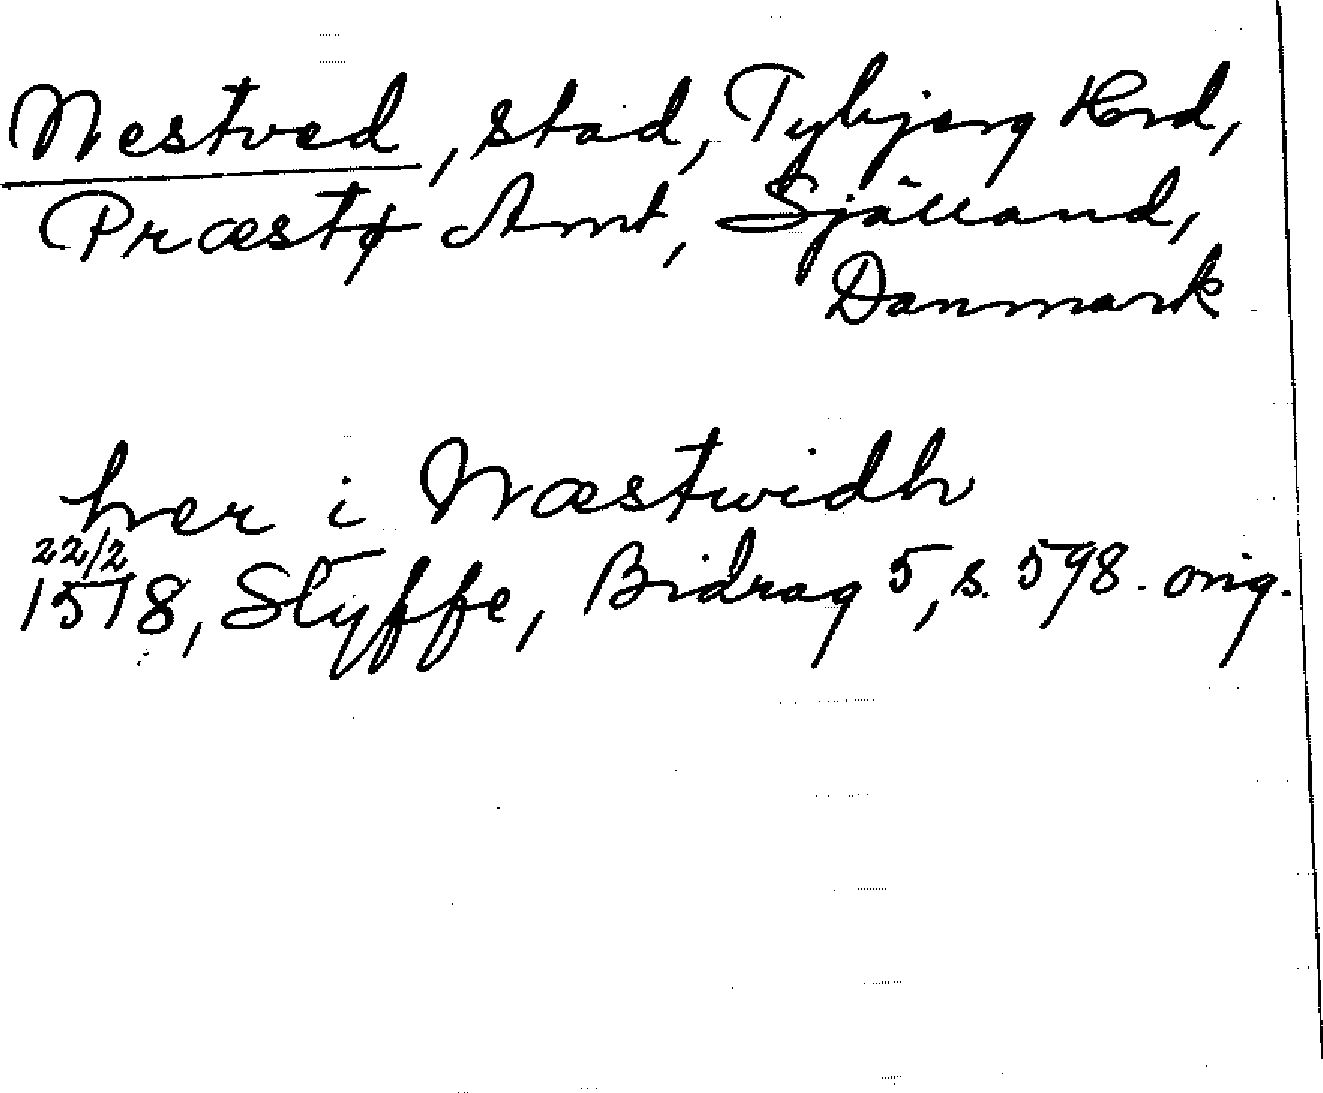 Nestved, stad, Tybjerg Hrd,
Præstø Amt, Själland,
Danmark
her i Næstwidh
22/2
1518, Styffe, Bidrag 5, s. 598. orig.